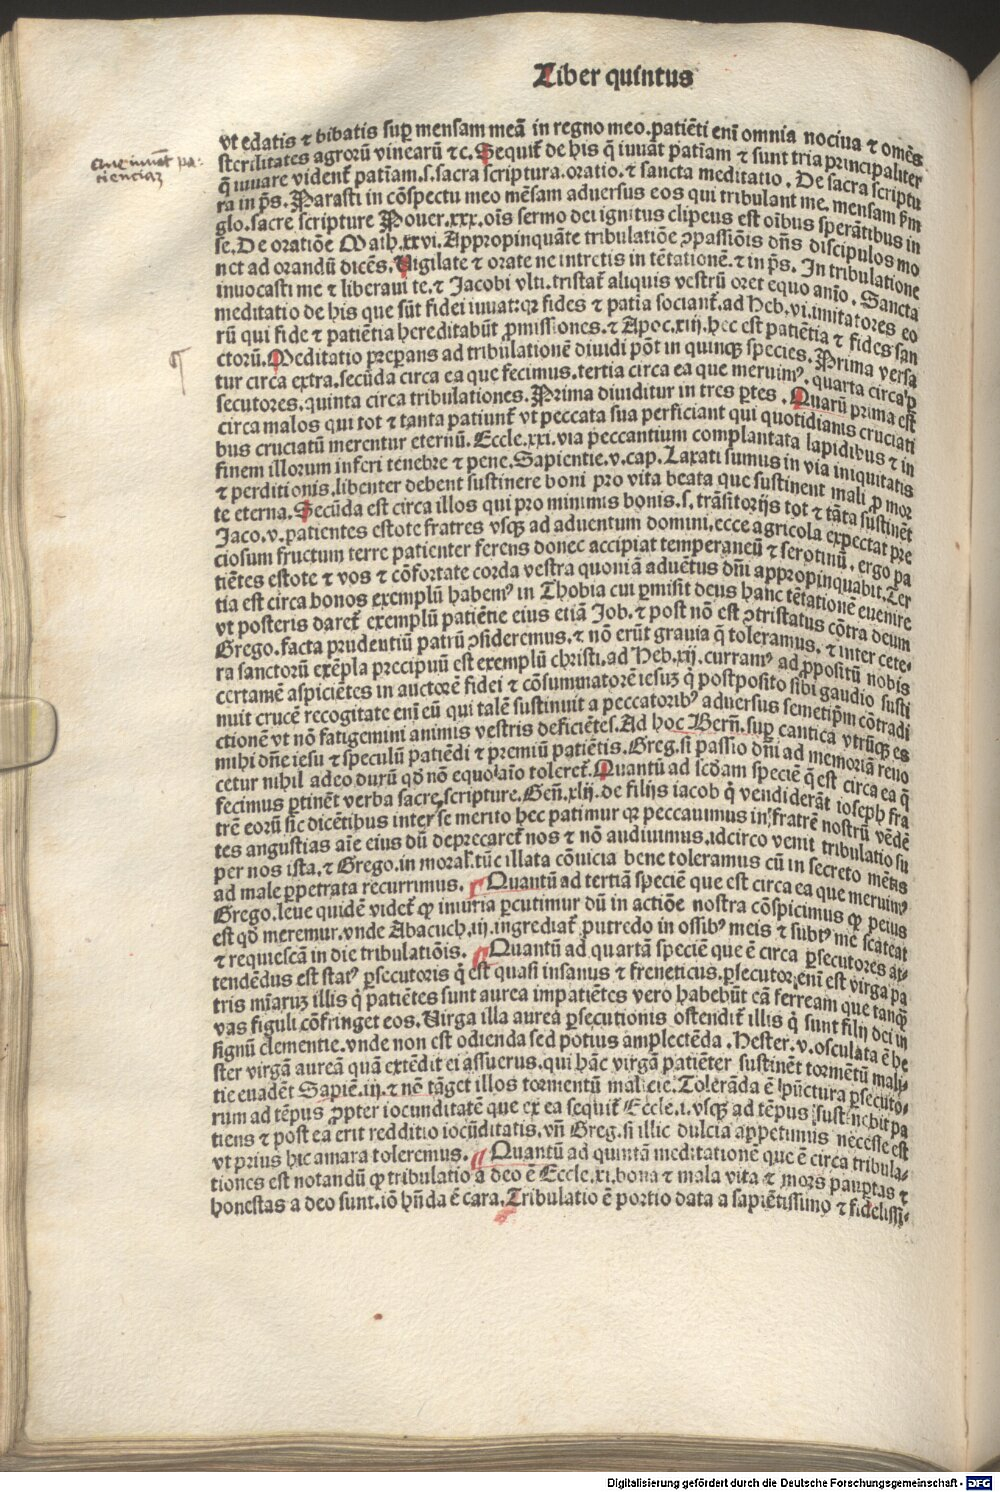 Liber quintus
vt edatis ⁊ bibatis sup̱ mensam meā in regno meo.patiēti enī omnia nociua ⁊ omēs
sterilitates agrorū vinearū ⁊c. Sequit᷑ de his q̄ iuuāt patīam ⁊ sunt tria principaliter
q̄ iuuare vident᷑ patīam.s.sacra scriptura.oratio.⁊ sancta meditatio. De sacra scriptu
ra in p̄s. Parasti in cōspectu meo mēsam aduersus eos qui tribulant me. mensam p̄m
glo.sacre scripture Prouer.xxx.oīs sermo dei ignitus clipeus est oībus sperātibus in
se. De oratiōe Math.xxvi. Appropinquāte tribulatiōe ꝯpassiōis dn̄s discipulos mo
net ad orandū dicēs. Vigilate ⁊ orate ne intretis in tētationē.⁊ in p̄s. In tribulatione
inuocasti me ⁊ liberaui te.⁊ Jacobi vlti.tristat᷑ aliquis vestrū oret equo aīo. Sancta
meditatio de his que sūt fidei iuuat:qꝛ fides ⁊ patīa sociant᷑.ad Heb.vi.imitatores eo
rū qui fide ⁊ patiētia hereditabūt ꝓmissiones.⁊ Apoc.xiij.hec est patiētia ⁊ fides san
ctorū. Meditatio p̄reparans ad tribulationē diuidi pōt in quinqꝫ species. Prima versa
tur circa extra.secūda circa ea que fecimus.tertia circa ea que meruimꝰ.quarta circa ꝑ
secutores.quinta circa tribulationes. Prima diuiditur in tres ꝑtes. Quarū prima est
circa malos qui tot ⁊ tanta patiunt᷑ vt peccata sua perficiant qui quotidianis cruciati
bus cruciatū merentur eternū. Eccle.xxi.via peccantium complantata lapidibus ⁊ in
finem illorum inferi tenebre ⁊ pene. Sapientie.v.cap. Laxati sumus in via iniquitatis
⁊ perditionis.libenter debent sustinere boni pro vita beata que sustinent mali ꝓ mor
te eterna. Secūda est circa illos qui pro minimis bonis.s.trāsitorijs tot ⁊ tāta sustinēt
Jaco.v.patientes estote fratres vsqꝫ ad aduentum domini.ecce agricola expectat pre
ciosum fructum terre patienter ferens donec accipiat temperaneū ⁊ serotinū. ergo pa
tiētes estote ⁊ vos ⁊ cōfortate corda vestra quoniā aduētus dn̄i appropinquabit. Ter
tia est circa bonos exemplū habemꝰ in Thobia cui ꝑmisit deus hanc tētationē euenire
vt posteris daret᷑ exemplū patiētie eius etiā Job.⁊ post nō est ꝯtristatus cōtra deum
Grego.facta prudentiū patrū ꝯsideremus.⁊ nō erūt grauia q̄ toleramus. ⁊ inter cete-
ra sanctorū exēpla precipuū est exemplū christi.ad Heb.xij.curramꝰ ad ꝓpositū nobis
certamē aspiciētes in auctorē fidei ⁊ cōsummatorē iesuꝫ q̇ postposito sibi gaudio susti
nuit crucē recogitate enī eū qui talē sustinuit a peccatoribꝰ aduersus semetip̄m cōtradi
ctionē vt nō fatigemini animis vestris deficiētes. Ad hoc Bern̄.sup̱ cantica vtrūqꝫ es
mihi dn̄e iesu ⁊ speculū patiēdi ⁊ premiū patiētis. Greg.si passio dn̄i ad memoriā reuo
cetur nihil adeo durū qd̄ nō equo aīo toleret᷑. Quantū ad scd̄am speciē q̄ est circa ea q̄
fecimus ꝑtinēt verba sacre scripture. Gen̄.xlij.de filijs iacob q̇ vendiderāt ioseph fra
trē eorū sic dicētibus inter se merito hec patimur qꝛ peccauimus in fratrē nostrū vidē
tes angustias aīe eius dū deprecaret᷑ nos ⁊ nō audiuimus.idcirco venit tribulatio su
per nos ista.⁊ Grego.in moral᷑.tūc illata cōuicia bene toleramus cū in secreto mētis
ad male ꝑpetrata recurrimus. Quantū ad tertiā speciē que est circa ea que meruimꝰ
Grego.leue quidē videt᷑ ꝙ iniuria ꝑcutimur dū in actiōe nostra cōspicimus ꝙ peius
est qd̄ meremur.vnde Abacuch.iij.ingrediat᷑ putredo in ossibꝰ meis ⁊ subtꝰ me scateat
⁊ requiescā in die tribulatiōis. Quantū ad quartā speciē que ē circa ꝑsecutores at-
tendēdus est statꝰ ꝑsecutoris q̇ est quasi insanus ⁊ freneticus.ꝑsecutor enī est virga pa
tris mīaruꝫ illis q̇ patiētes sunt aurea impatiētes vero habebūt eā ferream que tanqꝫ
vas figuli cōfringet eos. Virga illa aurea ꝑsecutionis ostendit᷑ illis q̇ sunt filij dei in
signū clementie.vnde non est odienda sed potius amplectēda. Hester.v.osculata ē he
ster virgā aureā quā extēdit ei assuerus.qui hāc virgā patiēter sustinēt tormētū mali-
tie euadēt Sapiē.iij.⁊ nō tāget illos tormentū malicie. Tolerāda ē pūctura ꝑsecuto-
rum ad tēpus ꝓpter iocunditatē que ex ea sequit᷑ Eccle.i.vsqꝫ ad tēpus sustinebit pa
tiens ⁊ post ea erit redditio iocūditatis.vn̄ Greg.si illic dulcia appetimus necesse est
vt prius hic amara toleremus. Quantū ad quintā meditationē que ē circa tribula-
tiones est notandū ꝙ tribulatio a deo ē Eccle.xi.bona ⁊ mala vita ⁊ mors paupertas ⁊
honestas a deo sunt.iō hn̄da ē cara. Tribulatio ē portio data a sapiētissimo ⁊ fidelissi-
Que iuuāt pa-
cienciaꝫ
Digitalisierung gefördert durch die Deutsche Forschungsgemeinschaft - DFG